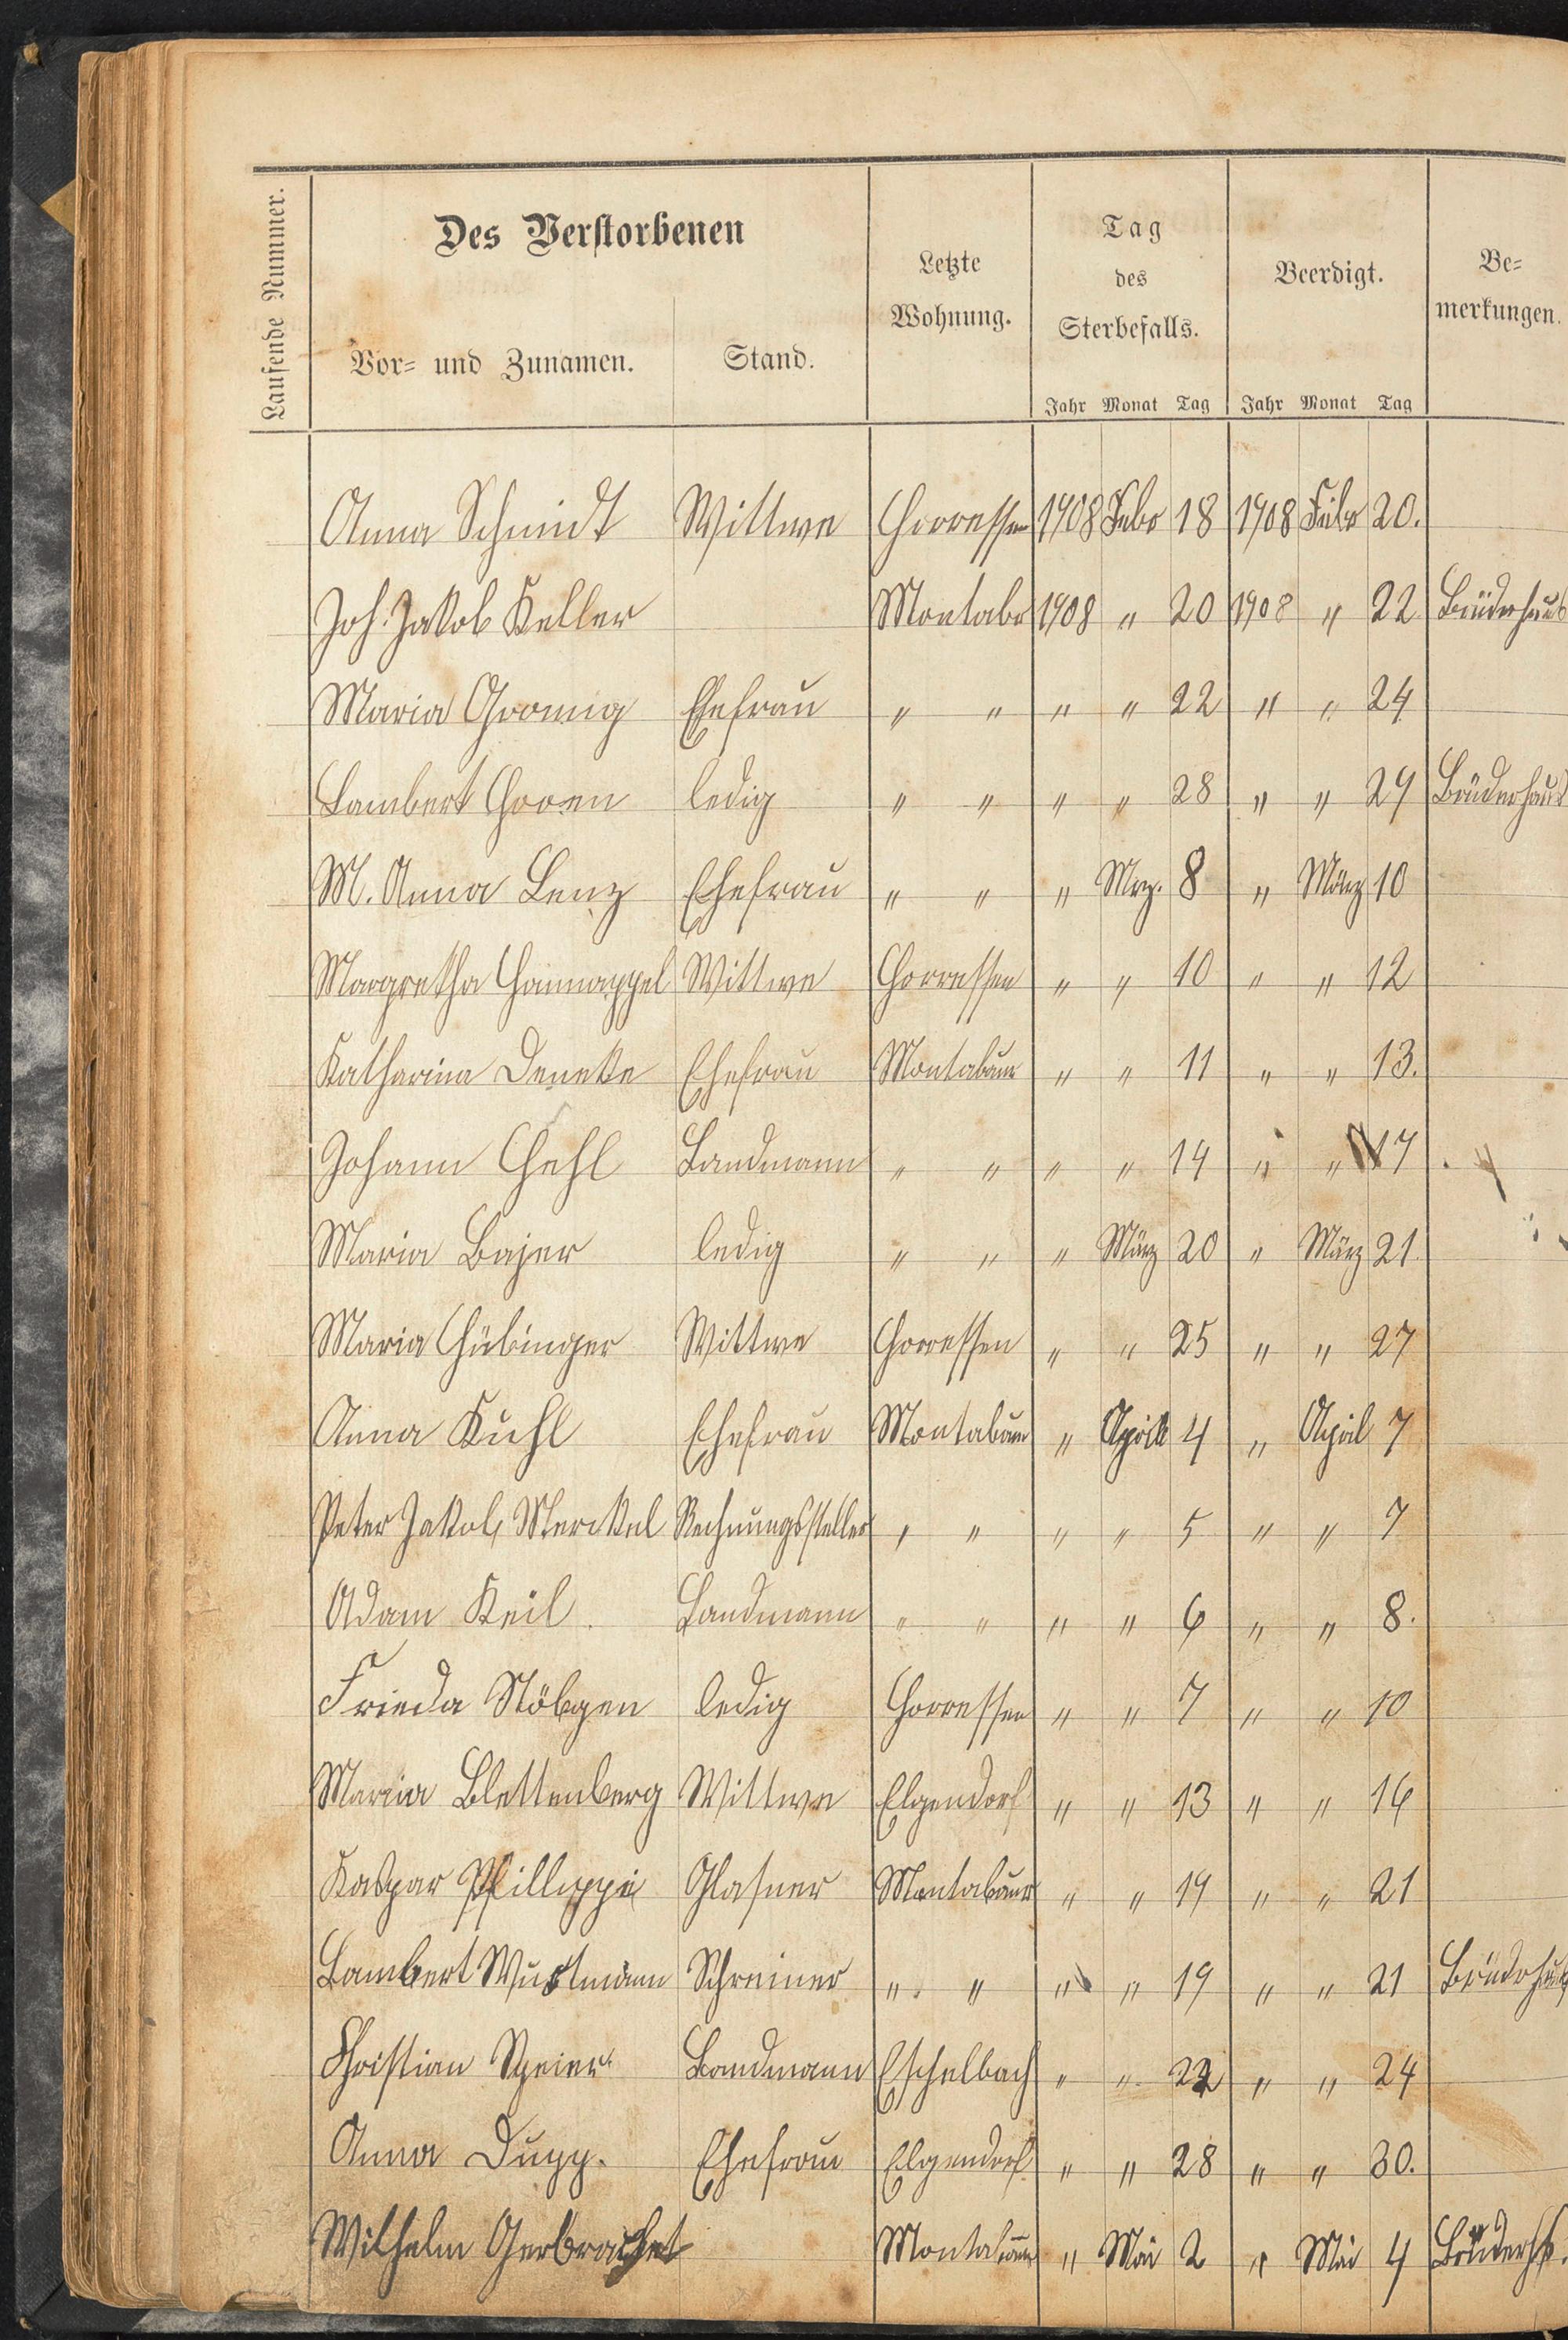 Laufende Nummer.
Des Verstorbenen
Vor- und Zunamen.
Stand.
Letzte
Wohnung.
Tag
des
Sterbefalls.
Jahr Monat Tag
Beerdigt.
Jahr Monat Tag
Be-
merkungen.
Anna Schmidt Wittwe Horressen 1908 Febr 18 1908 Febr 20.
Joh. Jakob Keller Montabr 1908 " 20 1908 " 22 Brüderhaus
Maria Ehefrau " " " " 22 " " 24
Lambert ledig " " " " 28 " " 29 Brüderhaus
M. Anna Lenz Ehefrau " " " Mrz. 8 " März 10
Margretha Hannappel Wittwe Horressen " " 10 " " 12
Katharina Deneke Ehefrau Montabaur " " 11 " " 13.
Johann Hehl Landmann " " " " 14 " " 17
Maria Bajer ledig " " " März 20 " März 21.
Maria Hübinger Wittwe Horressen " " 25 " " 27
Anna Kuhl Ehefrau Montabaur " April 4 " April 7
Peter Jakob Merckel Rechnungssteller " " " " 5 " " 7
Adam Keil. Landmann " " " " 6 " " 8.
Frieda Nöbgen ledig Horressen " " 7 " " 10
Maria Blettenberg Wittwe Elgendorf " " 13 " " 16
Kaspar Phillippi Glasner Montabaur " " 19 " " 21
Lambert Wustmann Schreiner " " " " 19 " " 21 Brüderhaus
Christian Speier Landmann Eschelbach " " 22 " " 24
Anna Dupp. Ehefrau Elgendorf " " 28 " " 30.
Wilhelm Gerbrachet Montabaur " Mai 2 " Mai 4 Brüderh.